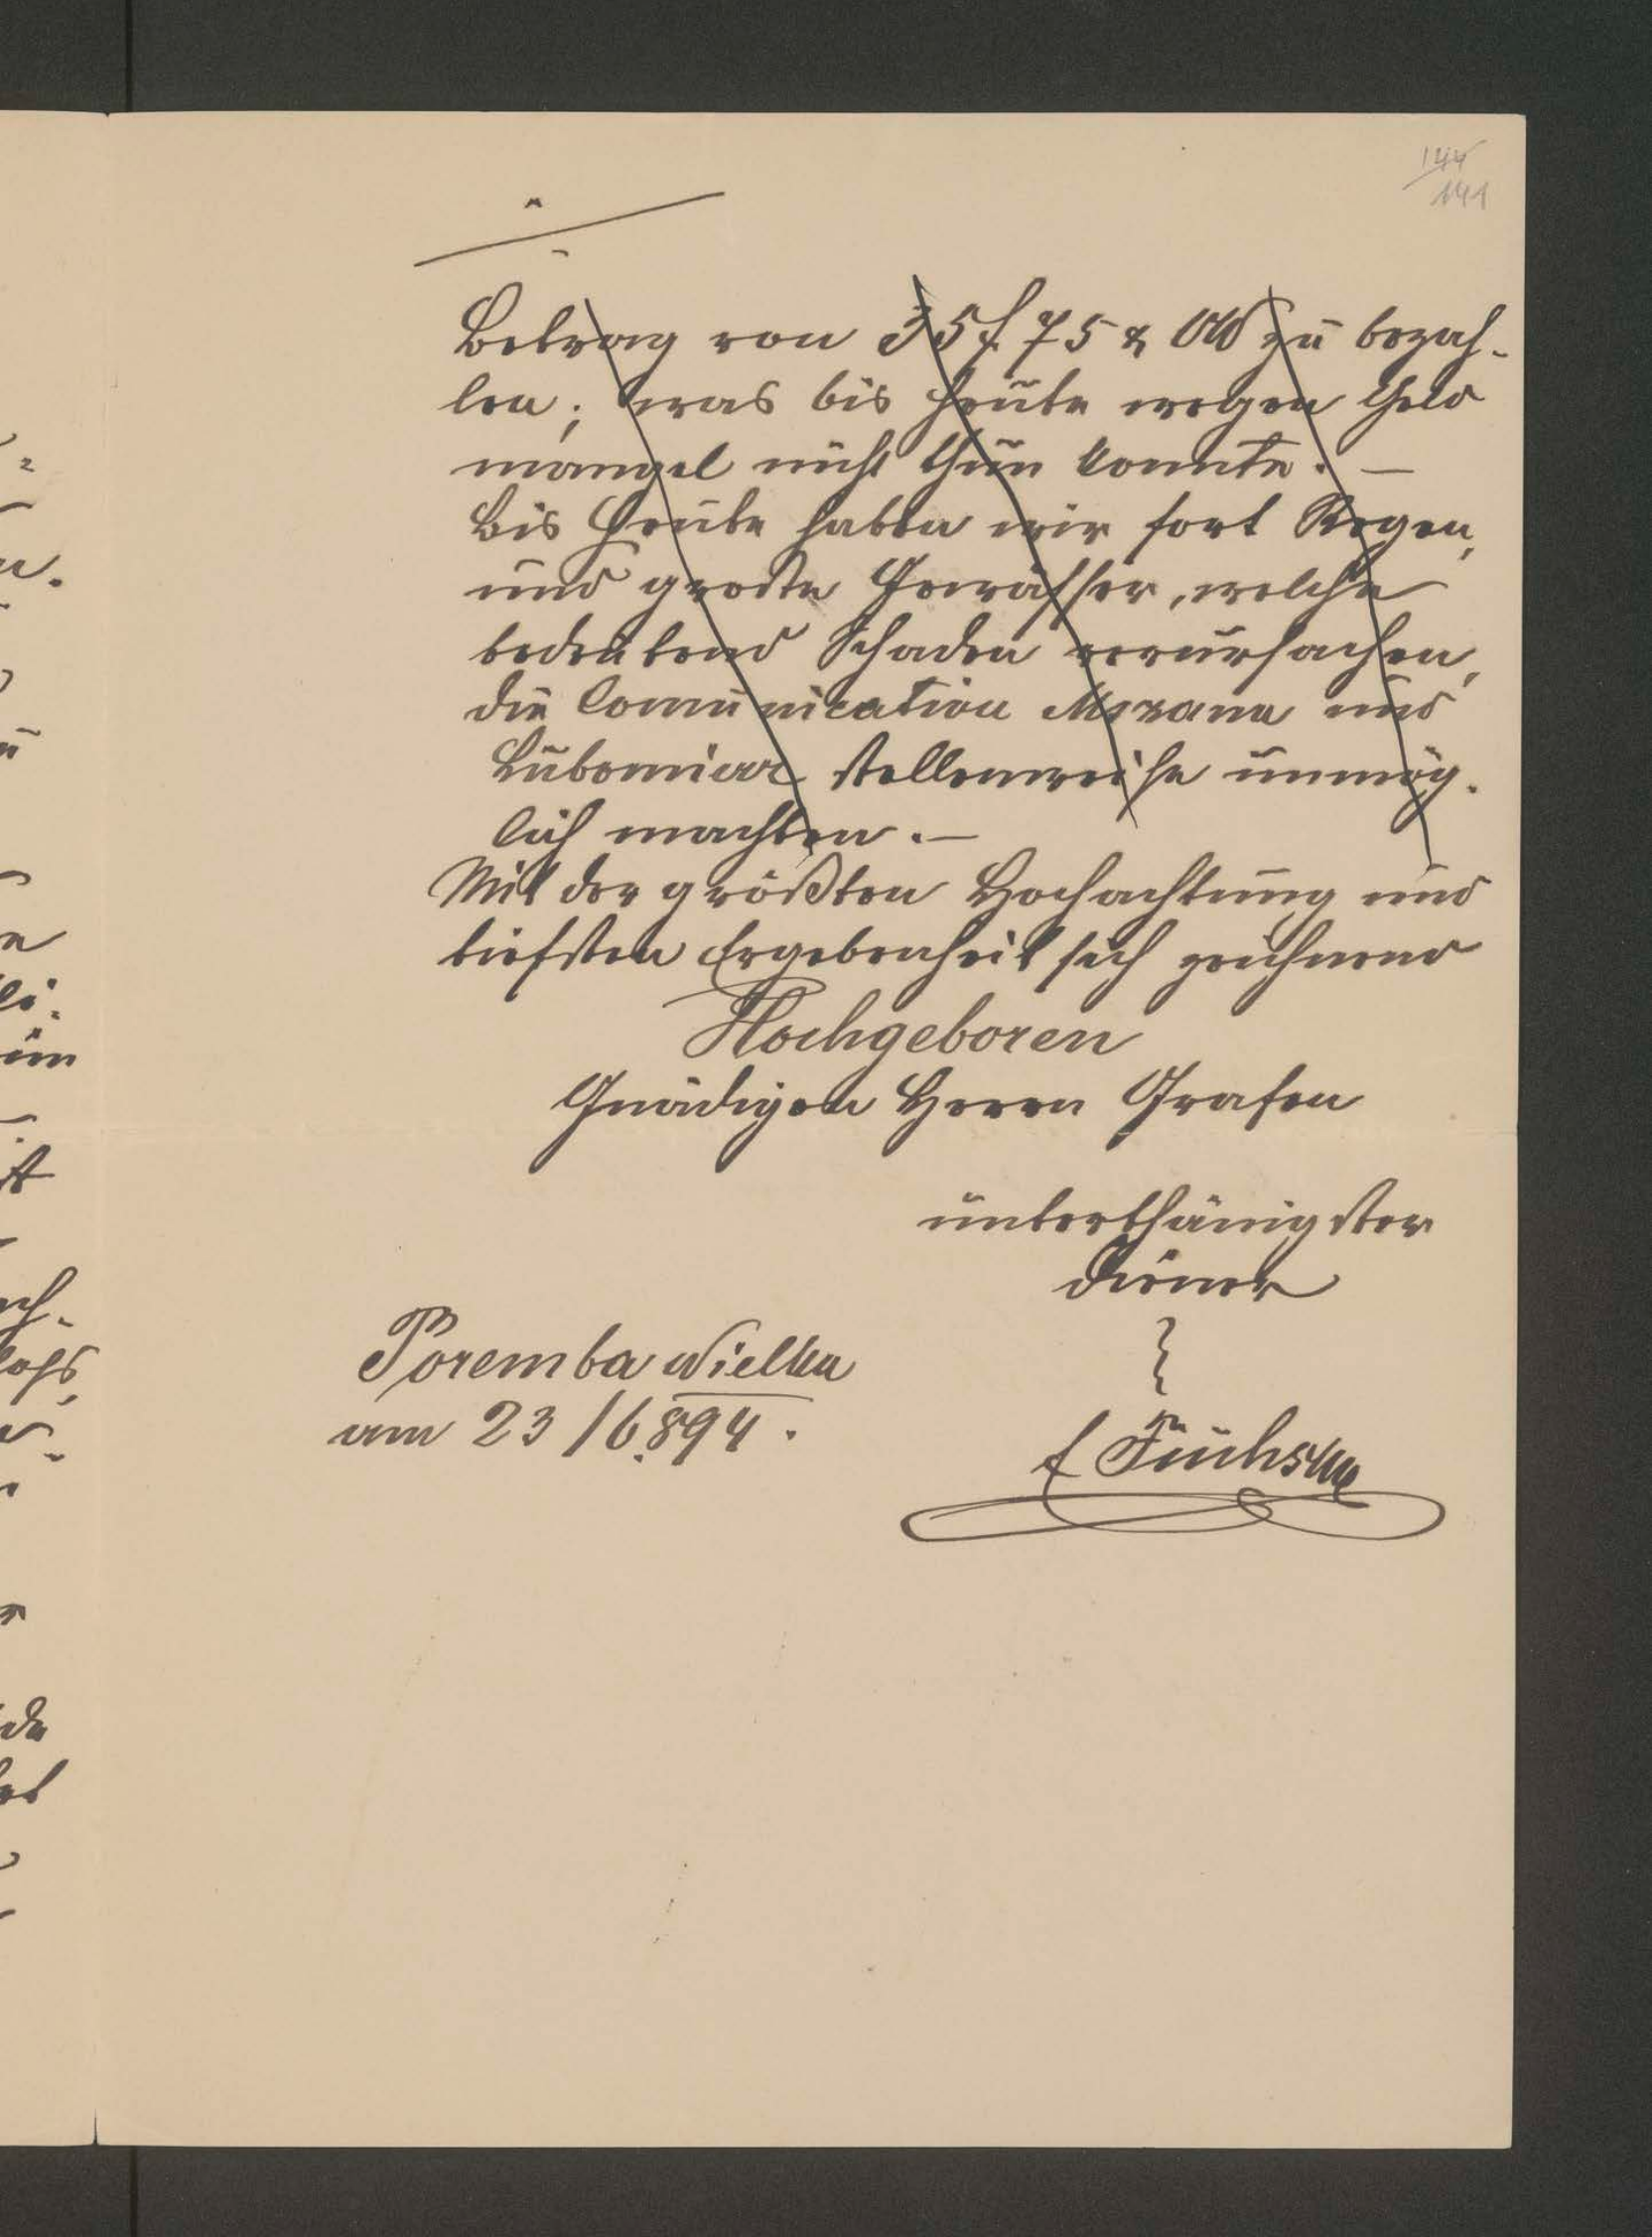 144
141
Betrag von 35 f 75 x OW zu bezah-
len; was bis heute wegen Geld
mangel nicht thun konnte. —
Bis Heute haben wir fort Regen,
und große Gewässer, welche
bedeutend Schaden verursachen,
die Comunication Mszana und
Lubomierz stellenweise unmög-
lich machten. —
Mit der größten Hochachtung und
tiefsten Ergebenheit sich zeichnend
Hochgeboren
Gnädigen Herrn Grafen
unterthänigster
Diener
Poremba Wielka
am 23/6 894.
f Fuchs